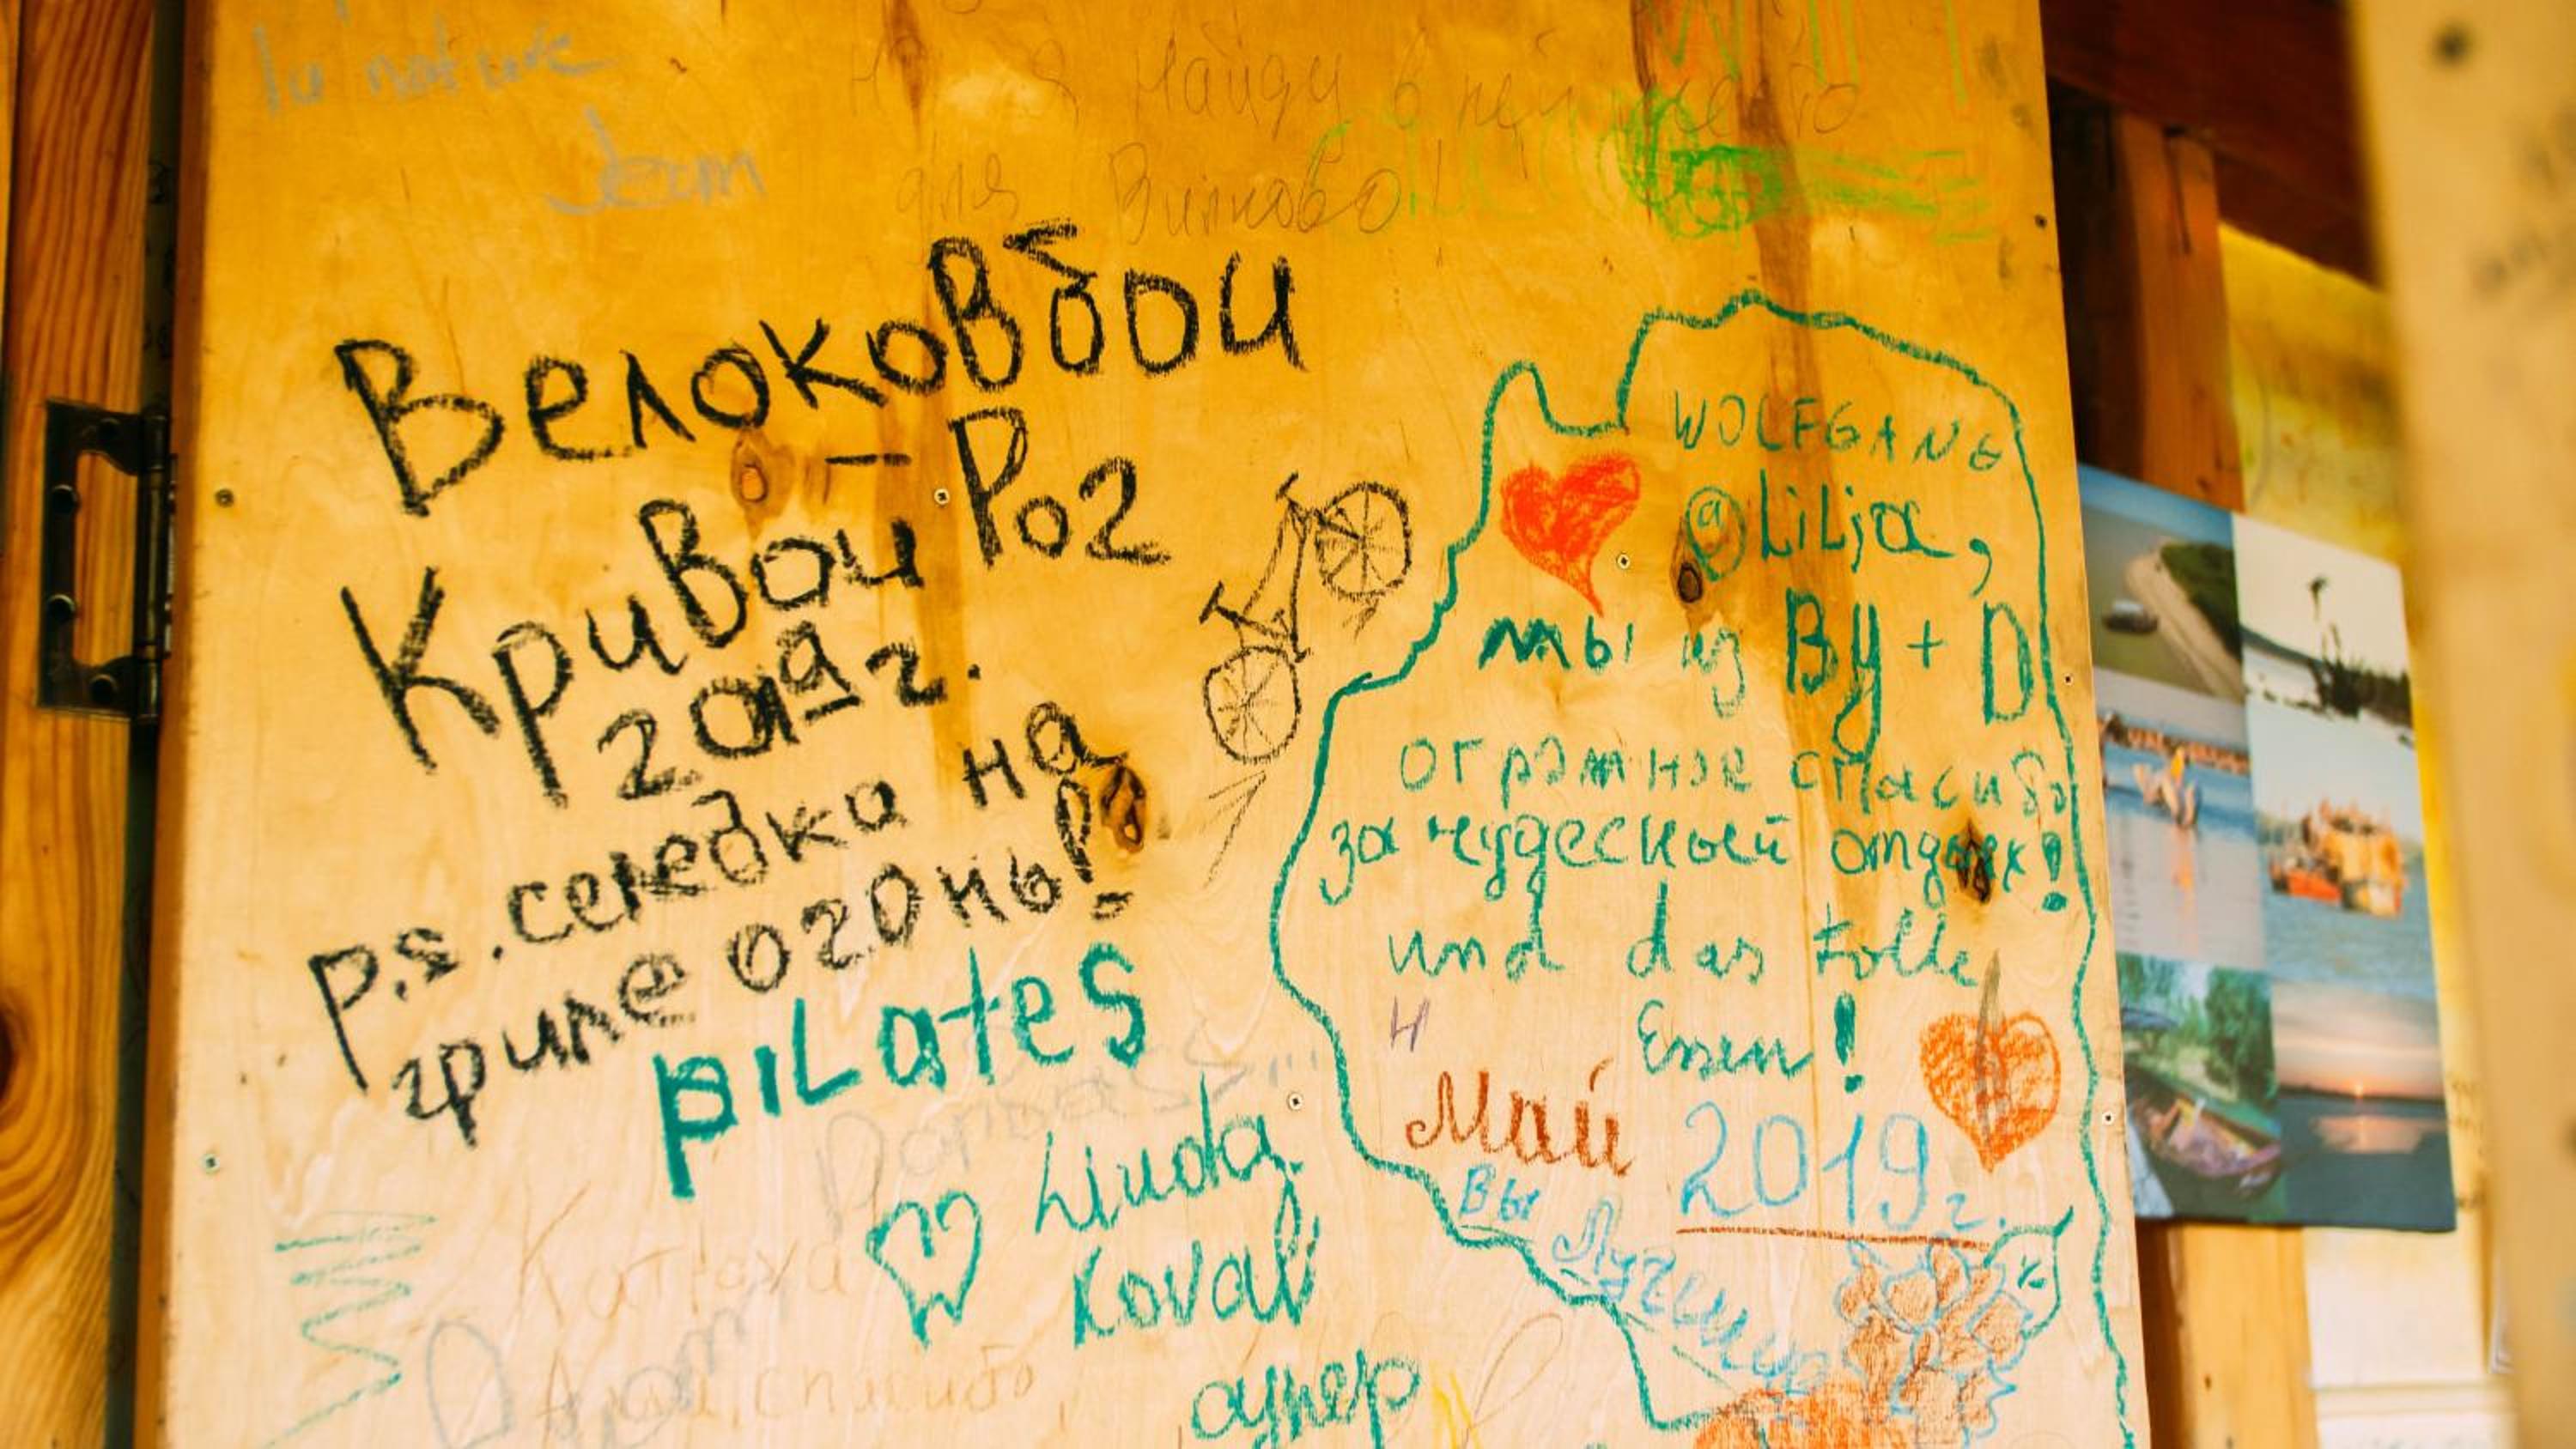 la nature
Jeam
я найду в ней
для Вилково
Велоковбои
Кривой Рог
2019 г.
p.s. селедка на
гриле огонь!
piLates
Liuda
Koval
супер
WOLFGANG
@ LiLja,
мы из By + D
огромное спасибо
за чудесный отдых!
und das tolle
Essen!
Май 2019 г.
Вы
Лучшие
Катюха
спасибо